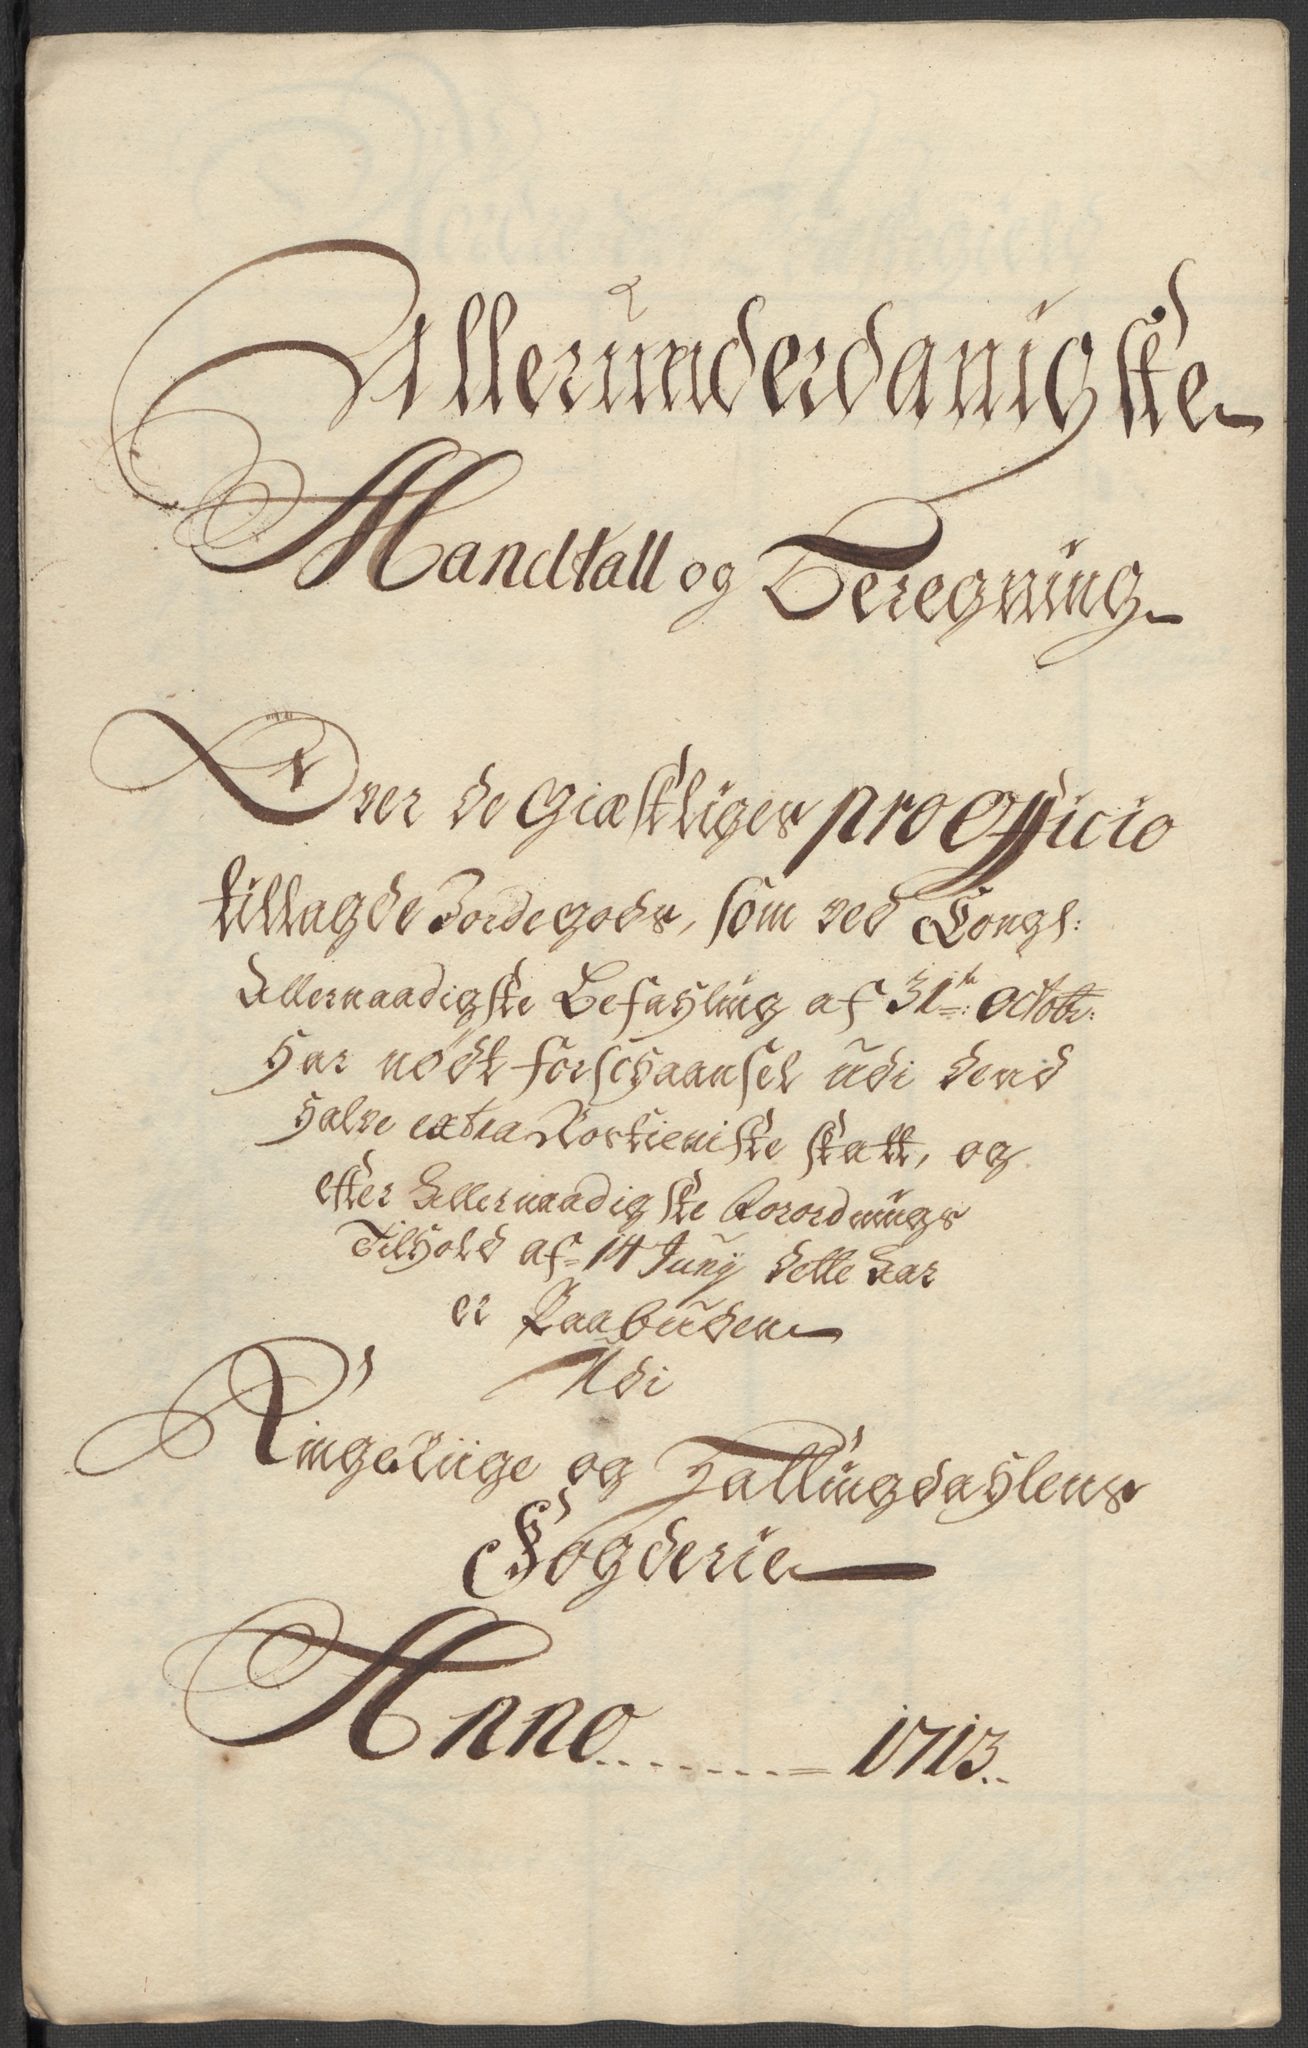 Allerunderdanigste
Mandtall og Beregning
Over de Giæstliges pro Officio
tillagde Jordegods, som ved Kongl:
Allernaadigste Befahling af 31te: Octobr:
har nødt forschaansel udi dend
halve extra Skatt, og
efter Allernaadigste Forordnings
Tilhold af 14 Junij dette Aar
er Paabuden
Udi
Ringeriige og Hallingdahlens
Fogderie
Anno ....... = 1713..